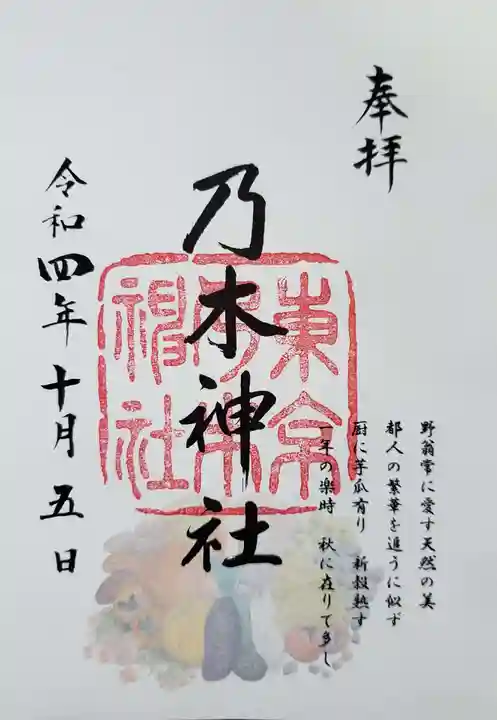 奉拝
野翁常に愛す天然の美
都人の繁華を追うに似ず
厨に芋瓜有り 新穀熟す
一年の楽時 秋に在りて多し
乃木神社
東京
乃木神社
令和四年十月五日